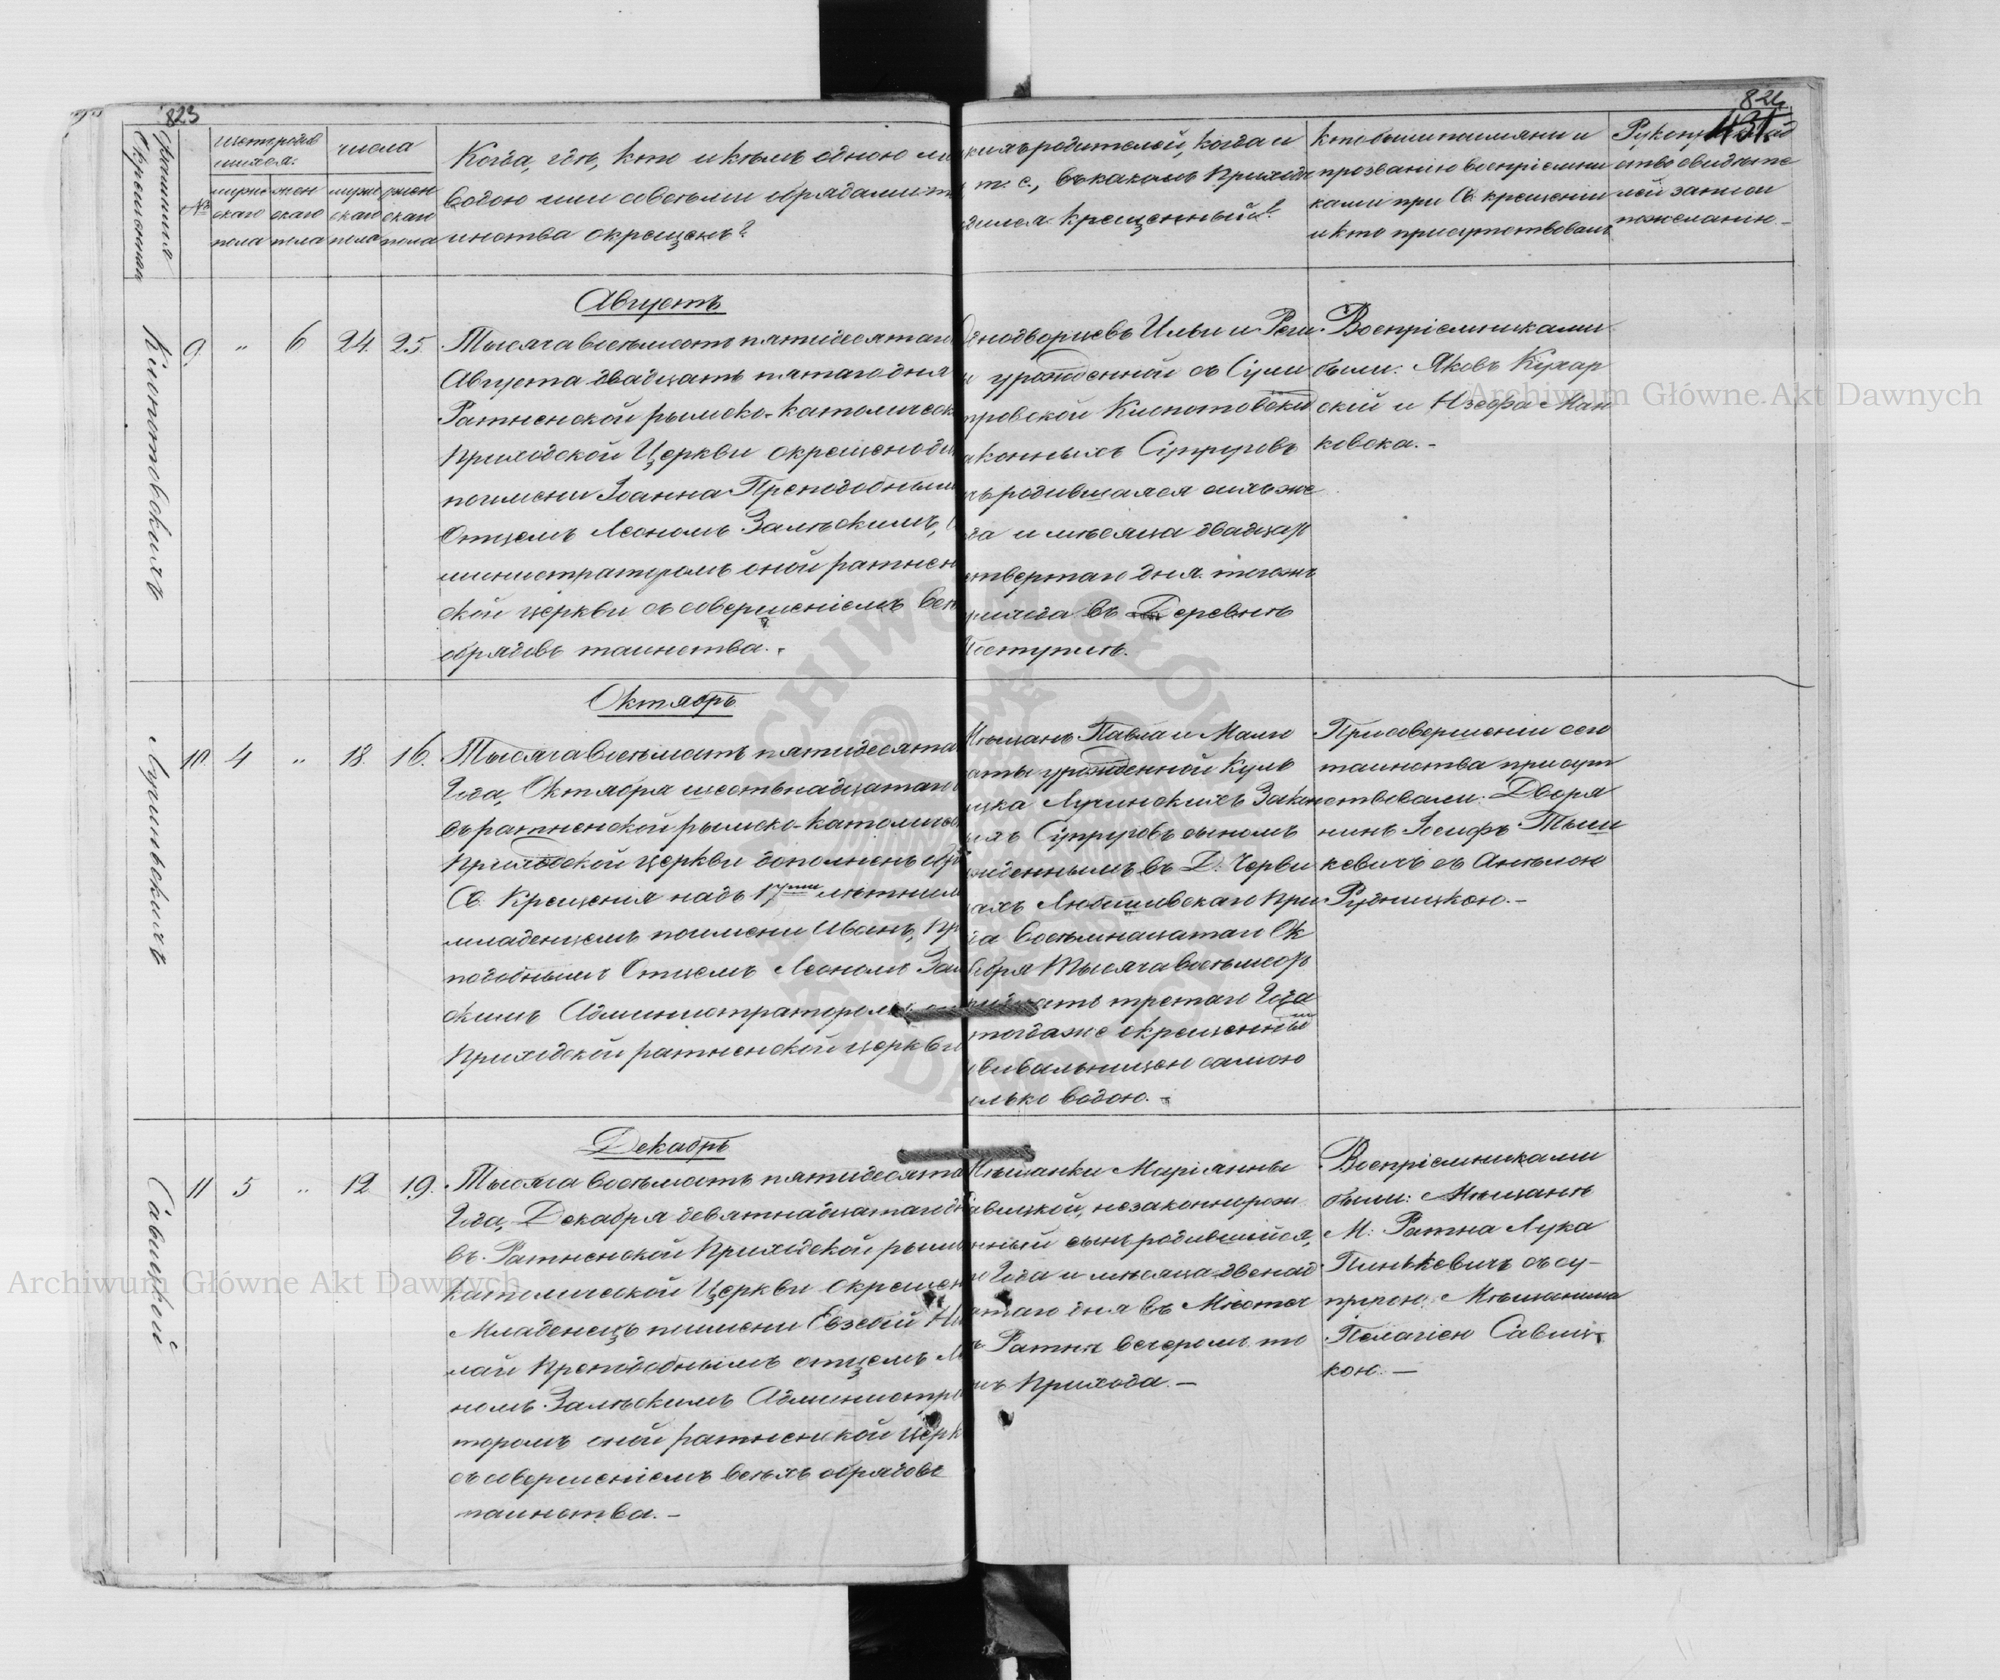 823
824
431.
Фамилия Окрещеннаго
№
числа
мужескаго пола
женскаго пола
мужескаго пола
женскаго пола
Когда, гдѣ, кто и кѣмъ одною ли
водою или совсѣми обрядами та
инства окрещенъ?
кихъ родителей, когда и
т. е., въ какомъ приходѣ
дился крещенный?
кто были по имяни и
прозванію воспріемни
ками при Св. крещеніи
и кто присутствовалъ
лей записи
по желанію.
Августъ
Клопотовскихъ
9. " 6 24. 25.
Тысяча восемьсотъ пятидесятаго
Августа двадцать пятаго дня
Ратненской рымско-католическ
приходской Церкви окрещено ди
по имени Іоанна Преподобнымъ
Отцемъ Леономъ Залѣскимъ,
министраторомъ оной ратнен
ской церкви съ совершеніемъ всѣ
обрядовъ таинства.
Однодворцевъ Ильи и Реги
и урожденной съ Сули
тровской Клопотовски
аконныхъ Супруговъ
чь родившаяся сихъ же
да и мѣсяца двадцать
етвертаго дня. тогожъ
прихода въ Деревнѣ
Поступлѣ.
Воспріемниками
были: Яковъ Кухар
скій и Юзефа Ман
ковска.
Октябрь
Лучинскихъ
10. 4 " 18. 16.
Тысяча восемьсотъ пятидесята
Года, Октября шестьнадцатаго
въ ратненской рымско-католичес
приходской церкви дополненъ обр
Св. Крещенія надъ 17ми лѣтним
младенцемъ по имени Иванъ, Пр
подобнымъ Отцемъ Леономъ Зал
скимъ Администраторомъ он
Приходской ратненской церкви
Мѣщанъ Павла и Мал
аты урожденной Куль
цка Лучинскихъ Закон
ыхъ Супруговъ сыномъ
жденнымъ въ Д. Черви
ахъ Любешивскаго При
да восемьнадцатаго Ок
тября тысяча восемьсотъ
ридцать третаго Года
тогдаже окрещеннымъ
вивальницею самою
олько водою.
При совершеніи сего
таинства присут
ствовали: Дворя
нинъ Іосифъ Тыш
кевичъ съ Ангелою
Рудницкою.
Декабрь
Савицкой
11 5 " 12 19.
Тысяча восемьсотъ пятидесята
Года, Декабря девятнадцатаго дн
въ Ратненской Приходской рым
католической Церкви окрещен
Младенецъ по имени Евзебій Ни
лай Преподобнымъ отцемъ Ле
номъ Залѣскимъ Администра
торомъ оной ратненской церк
съ совершеніемъ всѣхъ обрядовъ
таинства.
Мѣщанки Маріянны
авицкой, незаконнорож
нный сынъ родившійся,
Года и мѣсяца двенад
атаго дня въ Мѣстеч
Ратнѣ вечеромъ то
жъ Прихода.
Воспріемниками
были: Мѣщанъ
М: Ратна Лука
Пинькевичъ съ су-
пругою. Мѣщанина
Пелагіею Савиц
кою.
Archiwum Główne Akt Dawnych
Archiwum Główne Akt Dawnych
ARCHIWUM GŁÓWNE AKT DAWNYCH